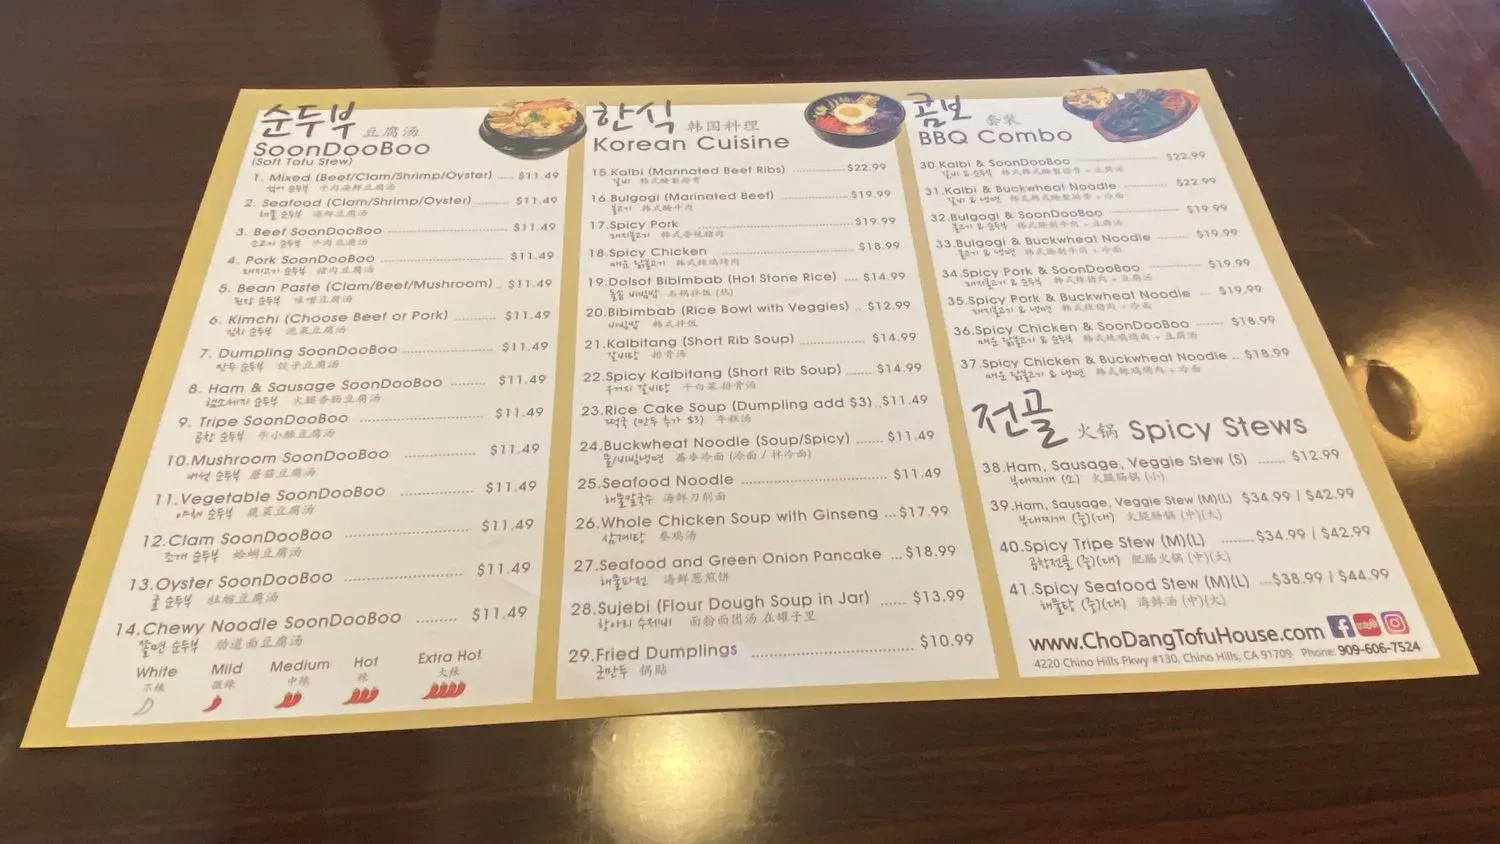 순두부 豆腐汤
SoonDooBoo
(Soft Tofu Stew)
1. Mixed (Beef/Clam/Shrimp/Oyster) ..... $11.49
섞어 순두부 牛肉海鲜豆腐汤
2. Seafood (Clam/Shrimp/Oyster) ..... $11.49
해물 순두부 海鲜豆腐汤
3. Beef SoonDooBoo ..... $11.49
소고기 순두부 牛肉豆腐汤
4. Pork SoonDooBoo ..... $11.49
돼지고기 순두부 猪肉豆腐汤
5. Bean Paste (Clam/Beef/Mushroom) .. $11.49
된장 순두부 味噌豆腐汤
6. Kimchi (Choose Beef or Pork) ..... $11.49
김치 순두부 泡菜豆腐汤
7. Dumpling SoonDooBoo ..... $11.49
만두 순두부 饺子豆腐汤
8. Ham & Sausage SoonDooBoo ..... $11.49
햄소세지 순두부 火腿香肠豆腐汤
9. Tripe SoonDooBoo ..... $11.49
곱창 순두부 牛小肠豆腐汤
10.Mushroom SoonDooBoo ..... $11.49
버섯 순두부 蘑菇豆腐汤
11.Vegetable SoonDooBoo ..... $11.49
야채 순두부 蔬菜豆腐汤
12.Clam SoonDooBoo ..... $11.49
조개 순두부 蛤蜊豆腐汤
13.Oyster SoonDooBoo ..... $11.49
굴 순두부 牡蛎豆腐汤
14.Chewy Noodle SoonDooBoo ..... $11.49
쫄면 순두부 筋道面豆腐汤
White Mild Medium Hot Extra Hot
不辣 微辣 中辣 辣 大辣
한식 韩国料理
Korean Cuisine
15.Kalbi (Marinated Beef Ribs) ..... $22.99
갈비 韩式腌製排骨
16.Bulgogi (Marinated Beef) ..... $19.99
불고기 韩式腌牛肉
17.Spicy Pork ..... $19.99
돼지불고기 韩式香辣猪肉
18.Spicy Chicken ..... $18.99
매운 닭불고기 韩式辣鸡烤肉
19.Dolsot Bibimbab (Hot Stone Rice) .... $14.99
돌솥 비빔밥 石锅拌饭 (热)
20.Bibimbab (Rice Bowl with Veggies) .. $12.99
비빔밥 韩式拌饭
21.Kalbitang (Short Rib Soup) ..... $14.99
갈비탕 排骨汤
22.Spicy Kalbitang (Short Rib Soup) ..... $14.99
우거지 갈비탕 干白菜排骨汤
23.Rice Cake Soup (Dumpling add $3)..$11.49
떡국 (만두 추가 $3) 年糕汤
24.Buckwheat Noodle (Soup/Spicy) ..... $11.49
물/비빔냉면 荞麥冷面 (冷面 / 拌冷面)
25.Seafood Noodle ..... $11.49
해물칼국수 海鲜刀削面
26.Whole Chicken Soup with Ginseng ...$17.99
삼계탕 参鸡汤
27.Seafood and Green Onion Pancake ...$18.99
해물파전 海鲜葱煎饼
28.Sujebi (Flour Dough Soup in Jar) ..... $13.99
항아리 수제비 面粉面团汤 在罐子里
29.Fried Dumplings ..... $10.99
군만두 锅贴
콤보 套裝
BBQ Combo
30.Kalbi & SoonDooBoo ..... $22.99
갈비 & 순두부 韩式韩式腌製排骨 + 豆腐汤
31.Kalbi & Buckwheat Noodle ..... $22.99
갈비 & 냉면 韩式韩式腌製排骨 + 冷面
32.Bulgogi & SoonDooBoo ..... $19.99
불고기 & 순두부 韩式腌制牛肉 + 豆腐汤
33.Bulgogi & Buckwheat Noodle ..... $19.99
불고기 & 냉면 韩式腌制牛肉 + 冷面
34.Spicy Pork & SoonDooBoo ..... $19.99
돼지불고기 & 순두부 韩式辣猪肉 + 豆腐汤
35.Spicy Pork & Buckwheat Noodle ... $19.99
돼지불고기 & 냉면 韩式辣猪肉 + 冷面
36.Spicy Chicken & SoonDooBoo ..... $18.99
매운 닭불고기 & 순두부 韩式辣鸡烤肉 + 豆腐汤
37.Spicy Chicken & Buckwheat Noodle .. $18.99
매운 닭불고기 & 냉면 韩式辣鸡烤肉 + 冷面
전골 火锅 Spicy Stews
38.Ham, Sausage, Veggie Stew (S) ..... $12.99
부대찌개 (소) 火腿肠锅 (小)
39.Ham, Sausage, Veggie Stew (M)(L) $34.99 / $42.99
부대찌개 (중)(대) 火腿肠锅 (中)(大)
40.Spicy Tripe Stew (M)(L) ........$34.99 / $42.99
곱창전골 (중)(대) 肥肠火锅 (中)(大)
41.Spicy Seafood Stew (M)(L) ...$38.99 / $44.99
해물탕 (중)(대) 海鲜汤 (中)(大)
www.ChoDangTofuHouse.com
4220 Chino Hills Pkwy #130, Chino Hills, CA 91709 Phone: 909-606-7524